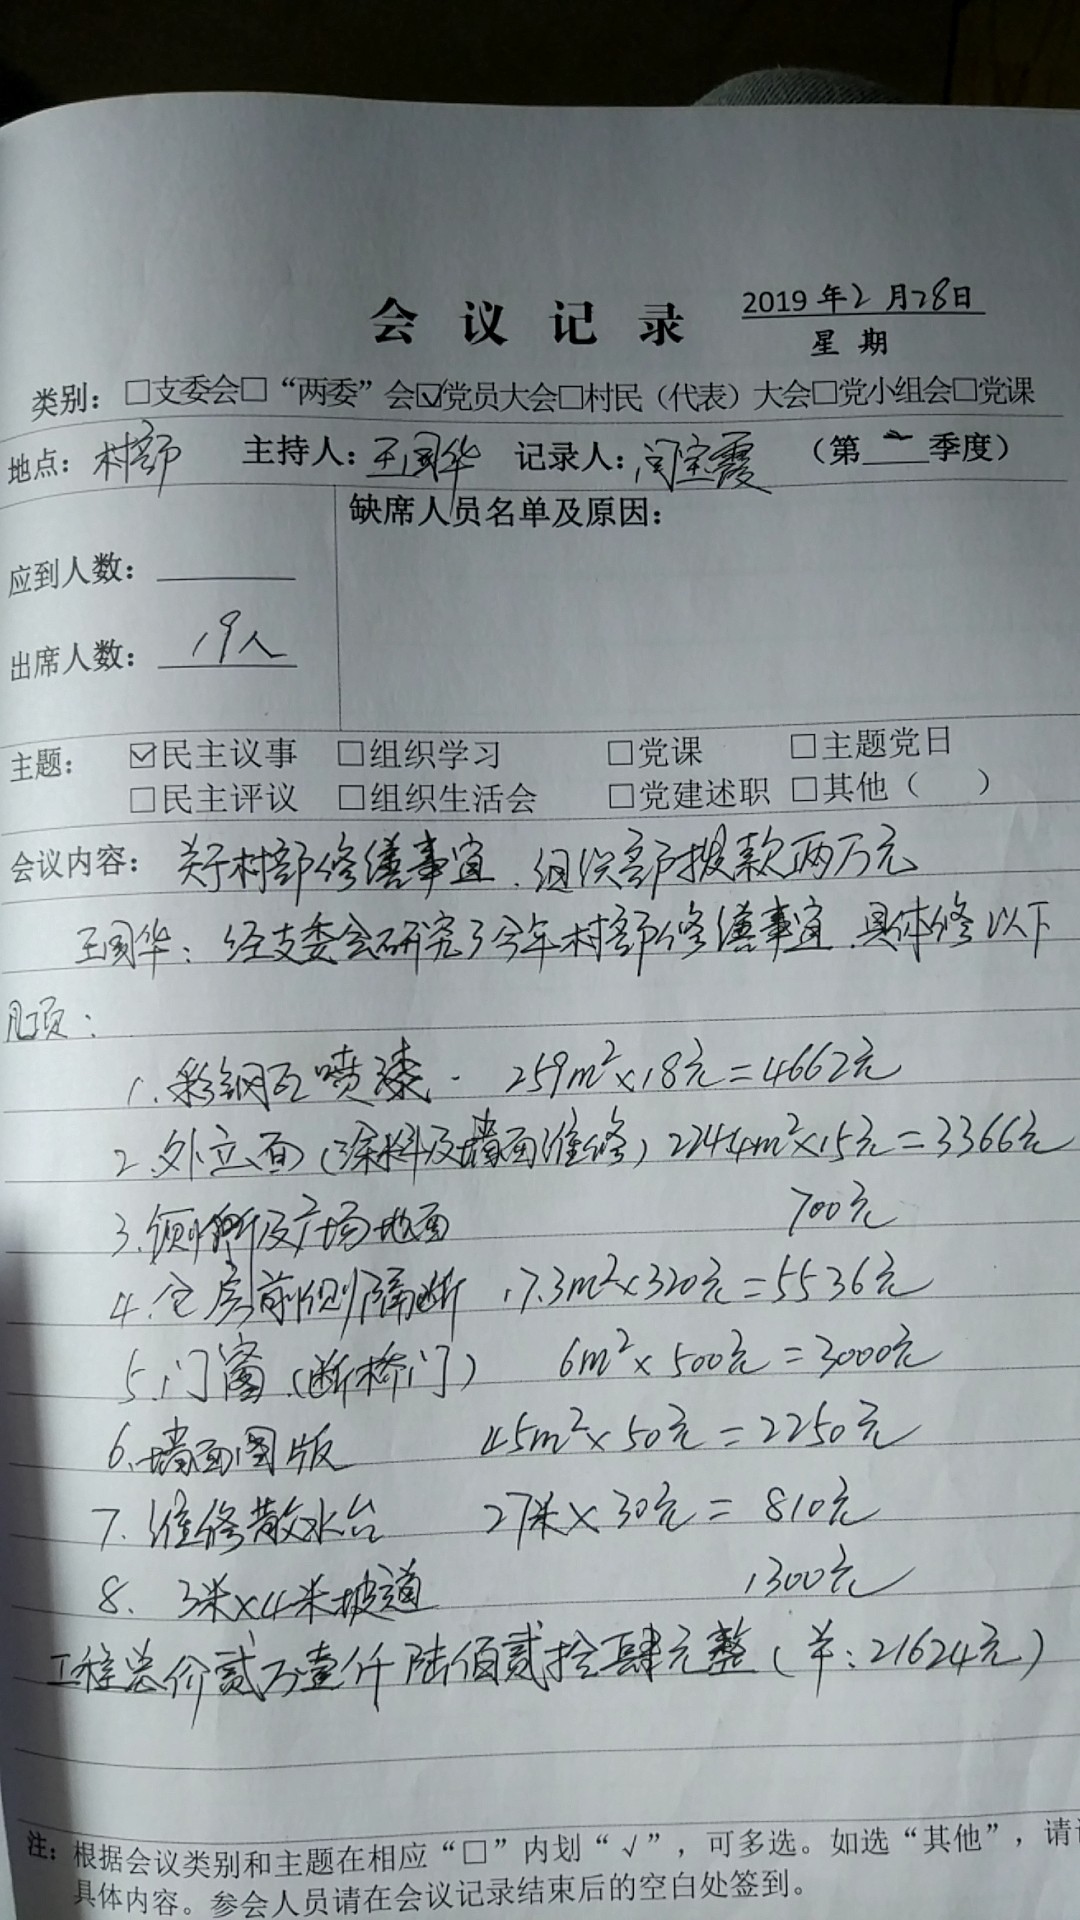 会议记录 2019年2月28日
星期
类别：□支委会□“两委”会☑党员大会□村民（代表）大会□党小组会□党课
地点：村部 主持人：王国华 记录人：闫宝霞 （第 季度）
缺席人员名单及原因：
应到人数：
出席人数：19人
主题：☑民主议事 □组织学习 □党课 □主题党日
□民主评议 □组织生活会 □党建述职 □其他（ ）
会议内容：关于村部修缮事宜．组织部拨款两万元
王国华：经支委会研究了今年村部修缮事宜．具体修以下
几项：
1.彩钢瓦喷漆． 259m²×18元=4662元
2.外立面（涂料及墙面维修）224.4m²×15元=3366元
3.厕所及广场地面 700元
4.仓房前侧隔断 17.3m²×320元=5536元
5.门窗（断桥门） 6m²×500元=3000元
6.墙面图版 45m²×50元=2250元
7.维修散水台 27米×30元=810元
8、3米×4米坡道 1300元
工程总价贰万壹仟陆佰贰拾肆元整（¥：21624元）
注：根据会议类别和主题在相应“□”内划“√”，可多选。如选“其他”，请
具体内容。参会人员请在会议记录结束后的空白处签到。